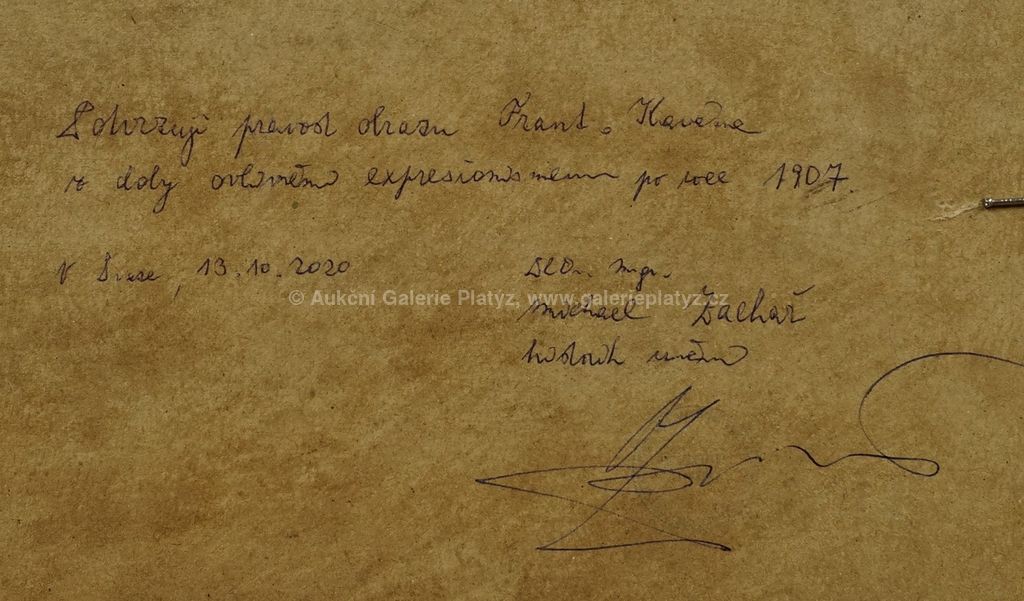 Potvrzuji pravost obrazu Frant. Kavána
z doby ovlivněné expresionismem po roce 1907.
V Praze, 13.10.2020
PhDr. Mgr.
© Aukční Galerie Platýz, www.galerieplatyz.cz
Michael Zachař
historik umění